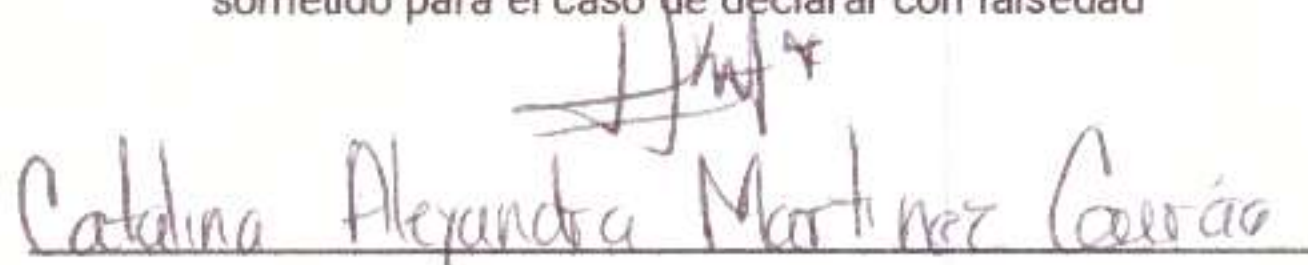 sometido para el caso de declarar con falsedad
Catalina Alejandra Martinez